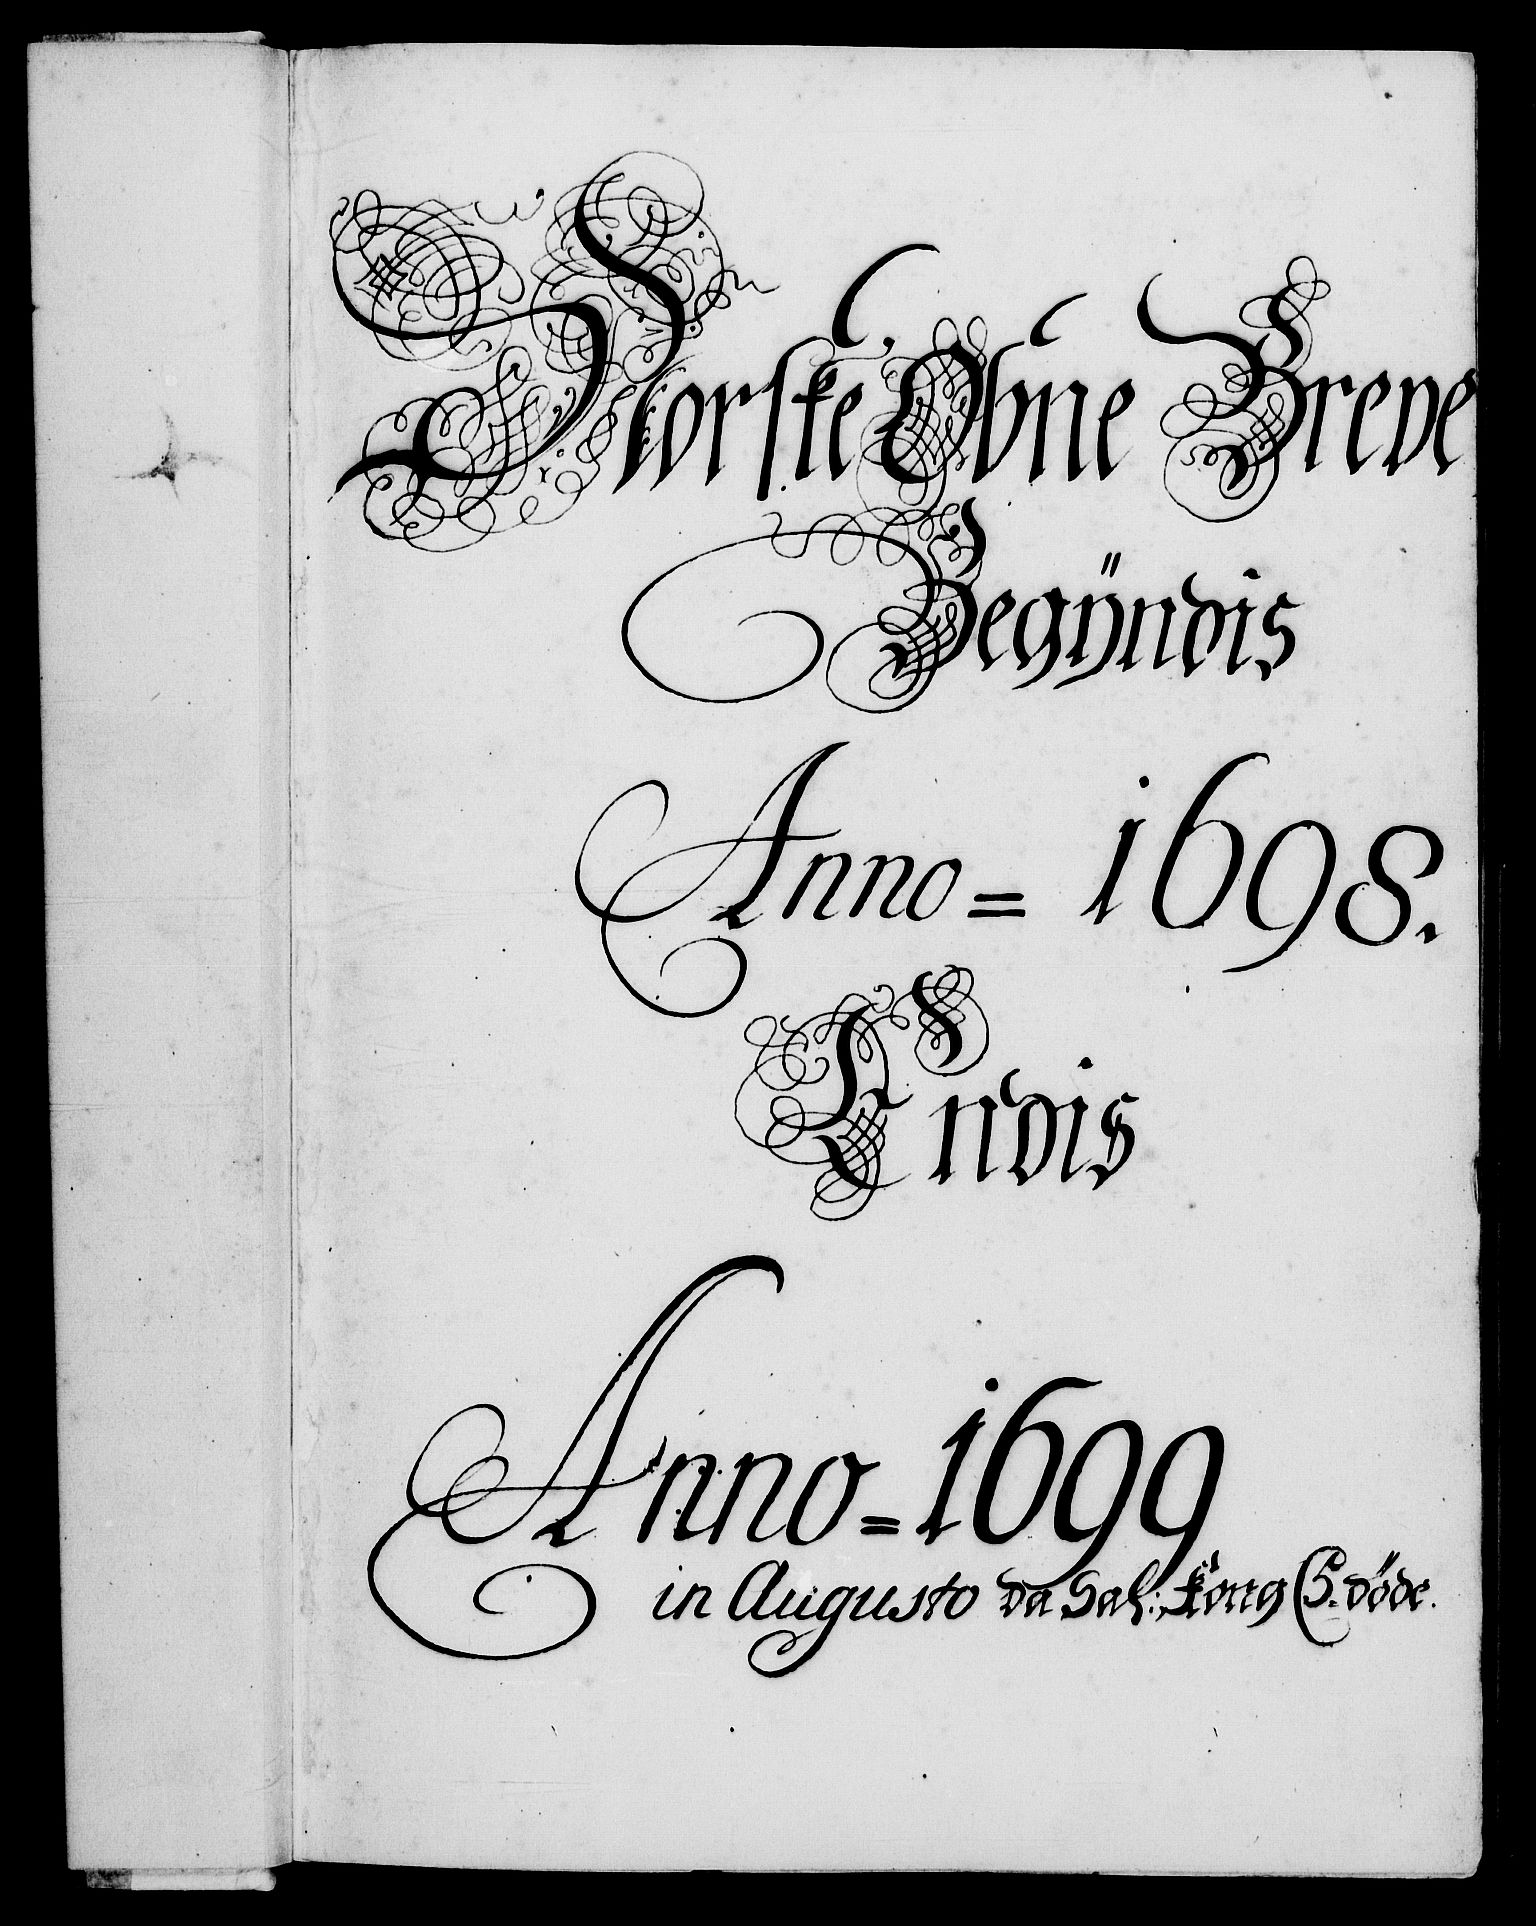 Norske Obne Breve
Begÿndis
Anno = 1698.
Endis
Anno = 1699
in Augusto da Sal: Kong C5. døde.